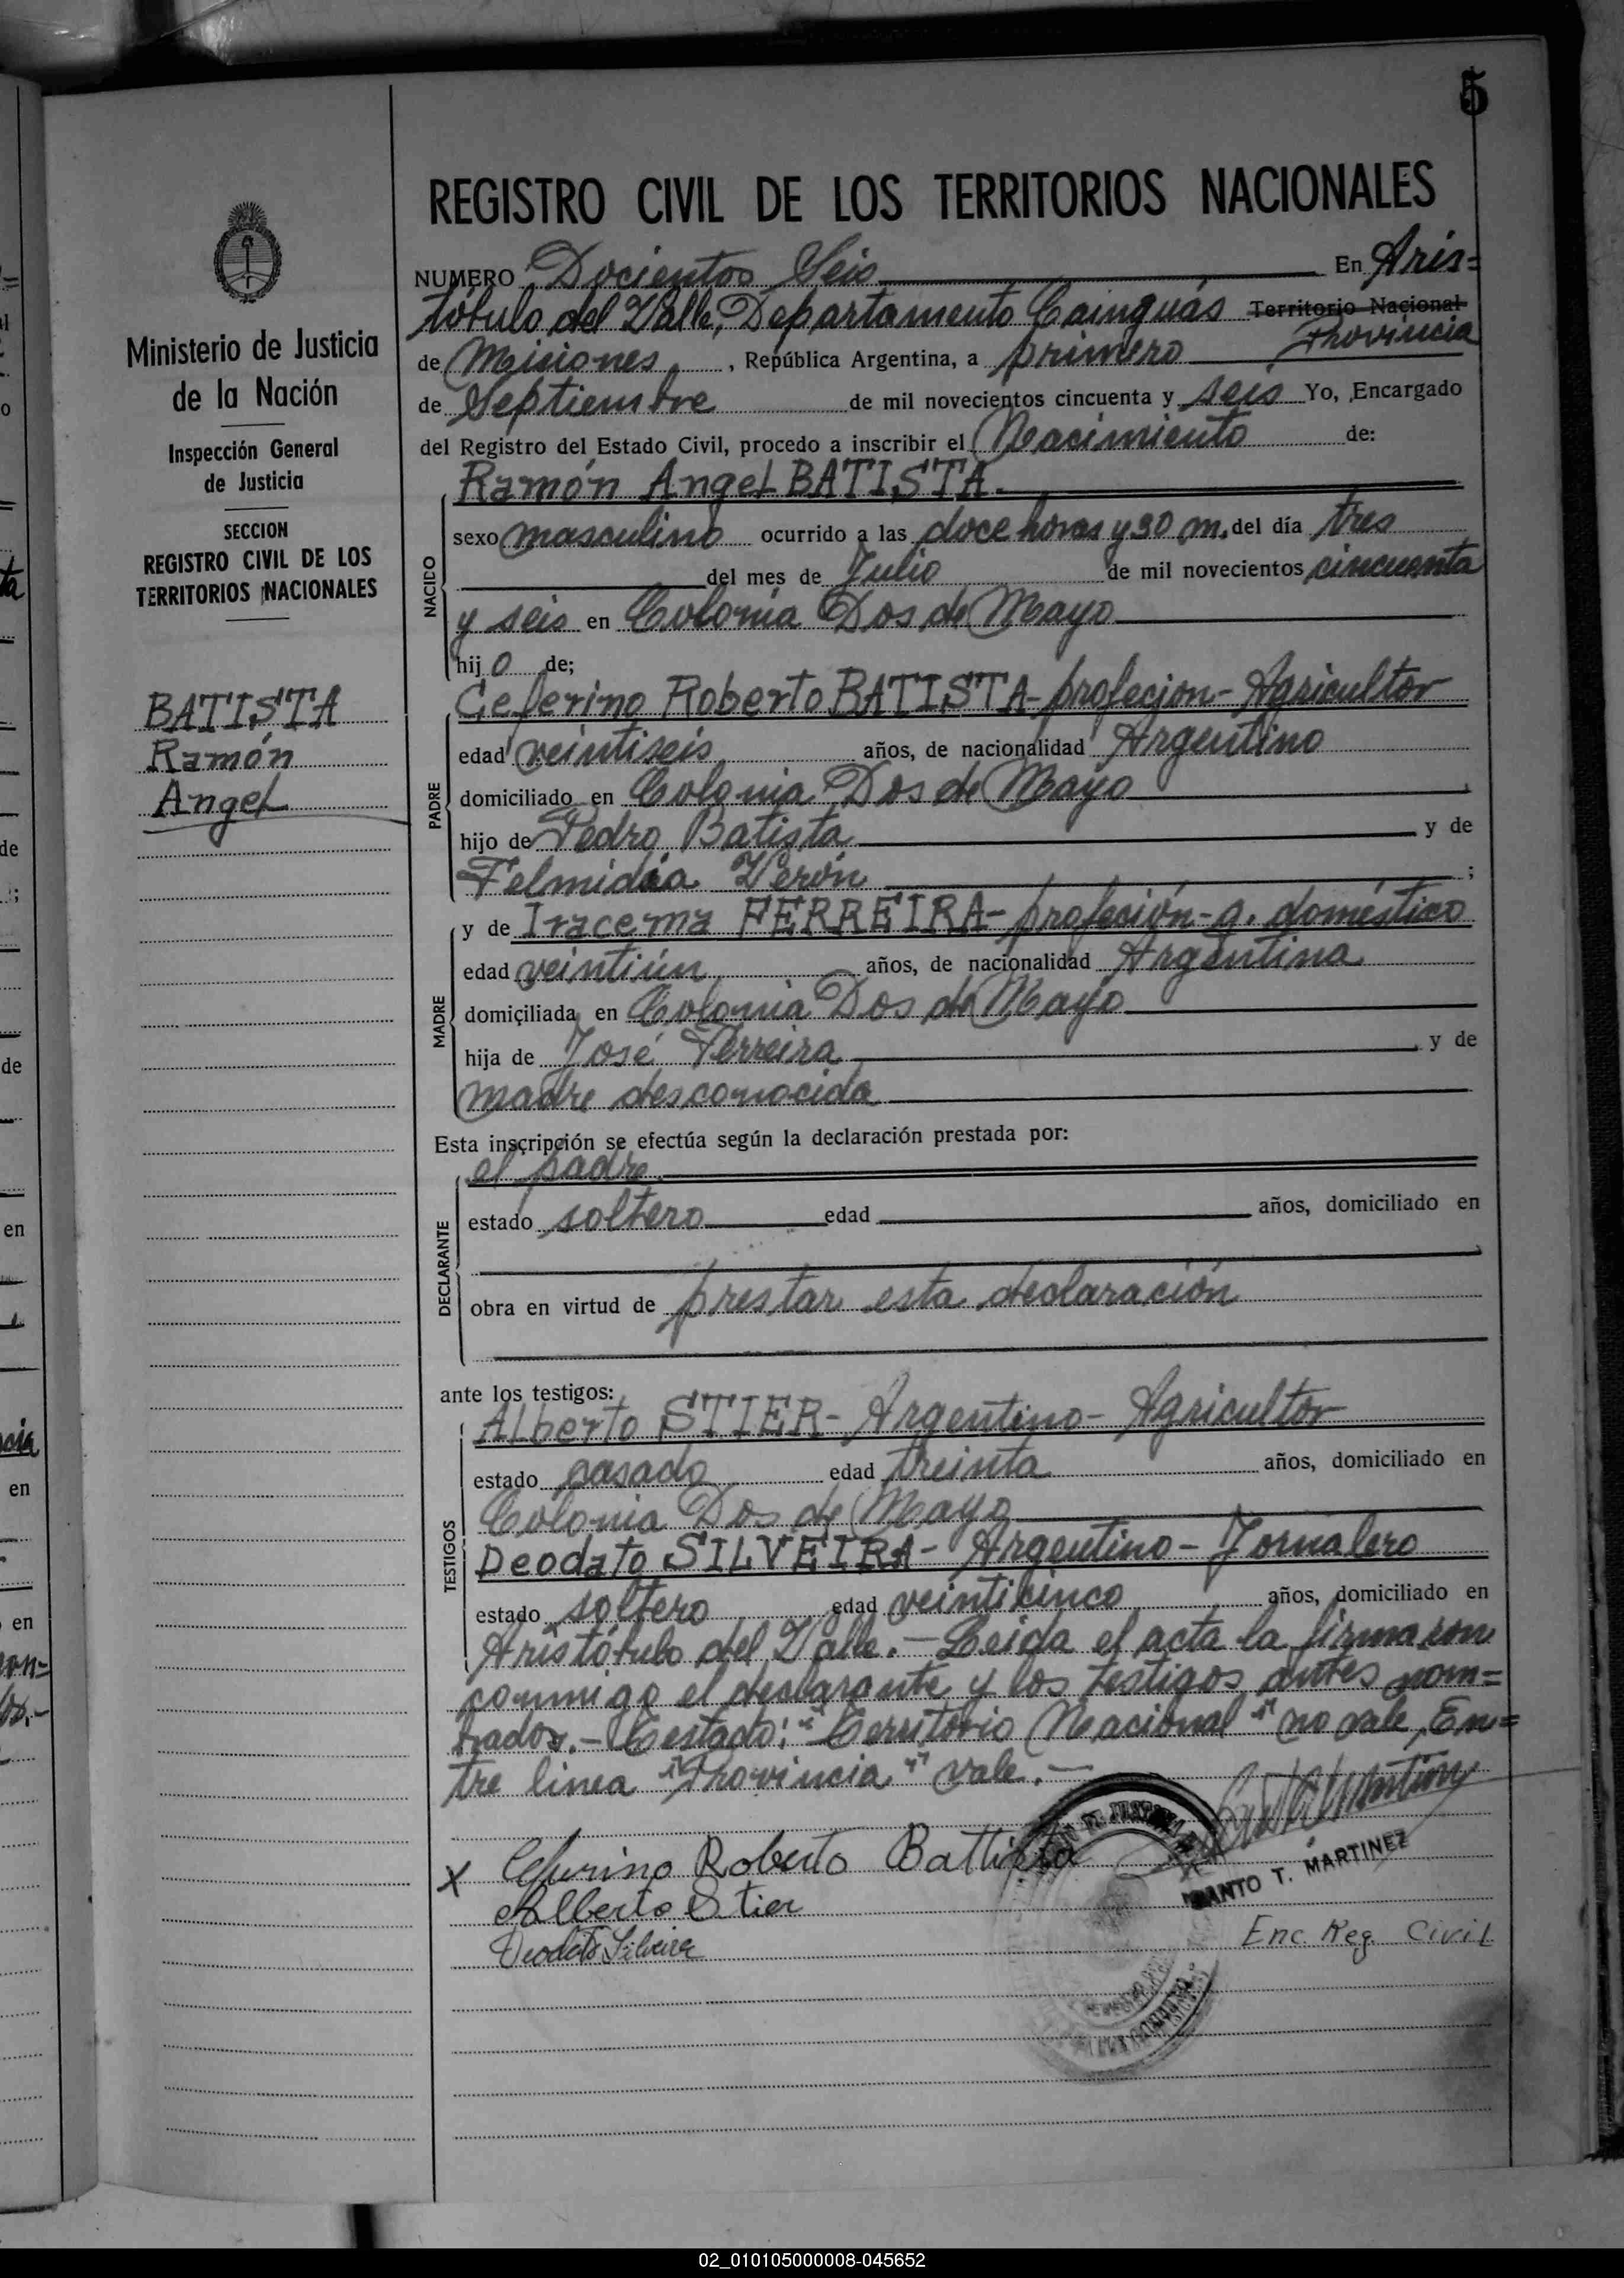 5
REGISTRO CIVIL DE LOS TERRITORIOS NACIONALES
Ministerio de Justicia
de la Nación
Inspección General
de Justicia
SECCION
REGISTRO CIVIL DE LOS
TERRITORIOS NACIONALES
BATISTA
Ramón
Angel
NUMERO Docientos Seis En Aris=
tóbulo del Valle, Departamento Cainguás Territorio Nacional
Provincia
de Misiones, República Argentina, a primero
de Septiembre de mil novecientos cincuenta y seis Yo, Encargado
del Registro del Estado Civil, procedo a inscribir el Nacimiento de:
NACIDO
Ramón Angel BATISTA.
sexo masculino ocurrido a las doce horas y 30 m. del día tres
del mes de Julio de mil novecientos cincuenta
y seis en Colonia Dos de Mayo
hijo de;
PADRE
Ceferino Roberto BATISTA- profecion- Agricultor
edad veintiseis años, de nacionalidad Argentino
domiciliado en Colonia Dos de Mayo
hijo de Pedro Batista y de
Felmidia Verón ;
MADRE
y de Iracema FERREIRA- profeción- q. doméstico
edad veintiún años, de nacionalidad Argentina
domiciliada en Colonia Dos de Mayo
hija de José Ferreira y de
madre desconocida
Esta inscripción se efectúa según la declaración prestada por:
DECLARANTE
el padre
estado soltero edad años, domiciliado en
obra en virtud de prestar esta declaración
ante los testigos:
TESTIGOS
Alberto STIER- Argentino- Agricultor
estado casado edad treinta años, domiciliado en
Colonia Dos de Mayo
Deodato SILVEIRA- Argentino- Jornalero
estado soltero edad veinticinco años, domiciliado en
Aristóbulo del Valle.- Leida el acta la firmaron
conmigo el declarante y los testigos antes nom=
brados.- Testado: "Territorio Nacional" no vale, En=
tre linea "Provincia" vale.-
x Ceferino Roberto Battista
Alberto Stier
Deodato Silveira
SANTO T. MARTINEZ
Enc. Reg. Civil
02_010105000008-045652